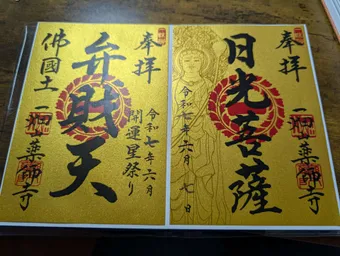 奉拝
日光菩薩
令和七年六月七日
一畑薬師寺
奉拝
弁財天
令和七年六月
開運星祭り
佛國土
一畑薬師寺